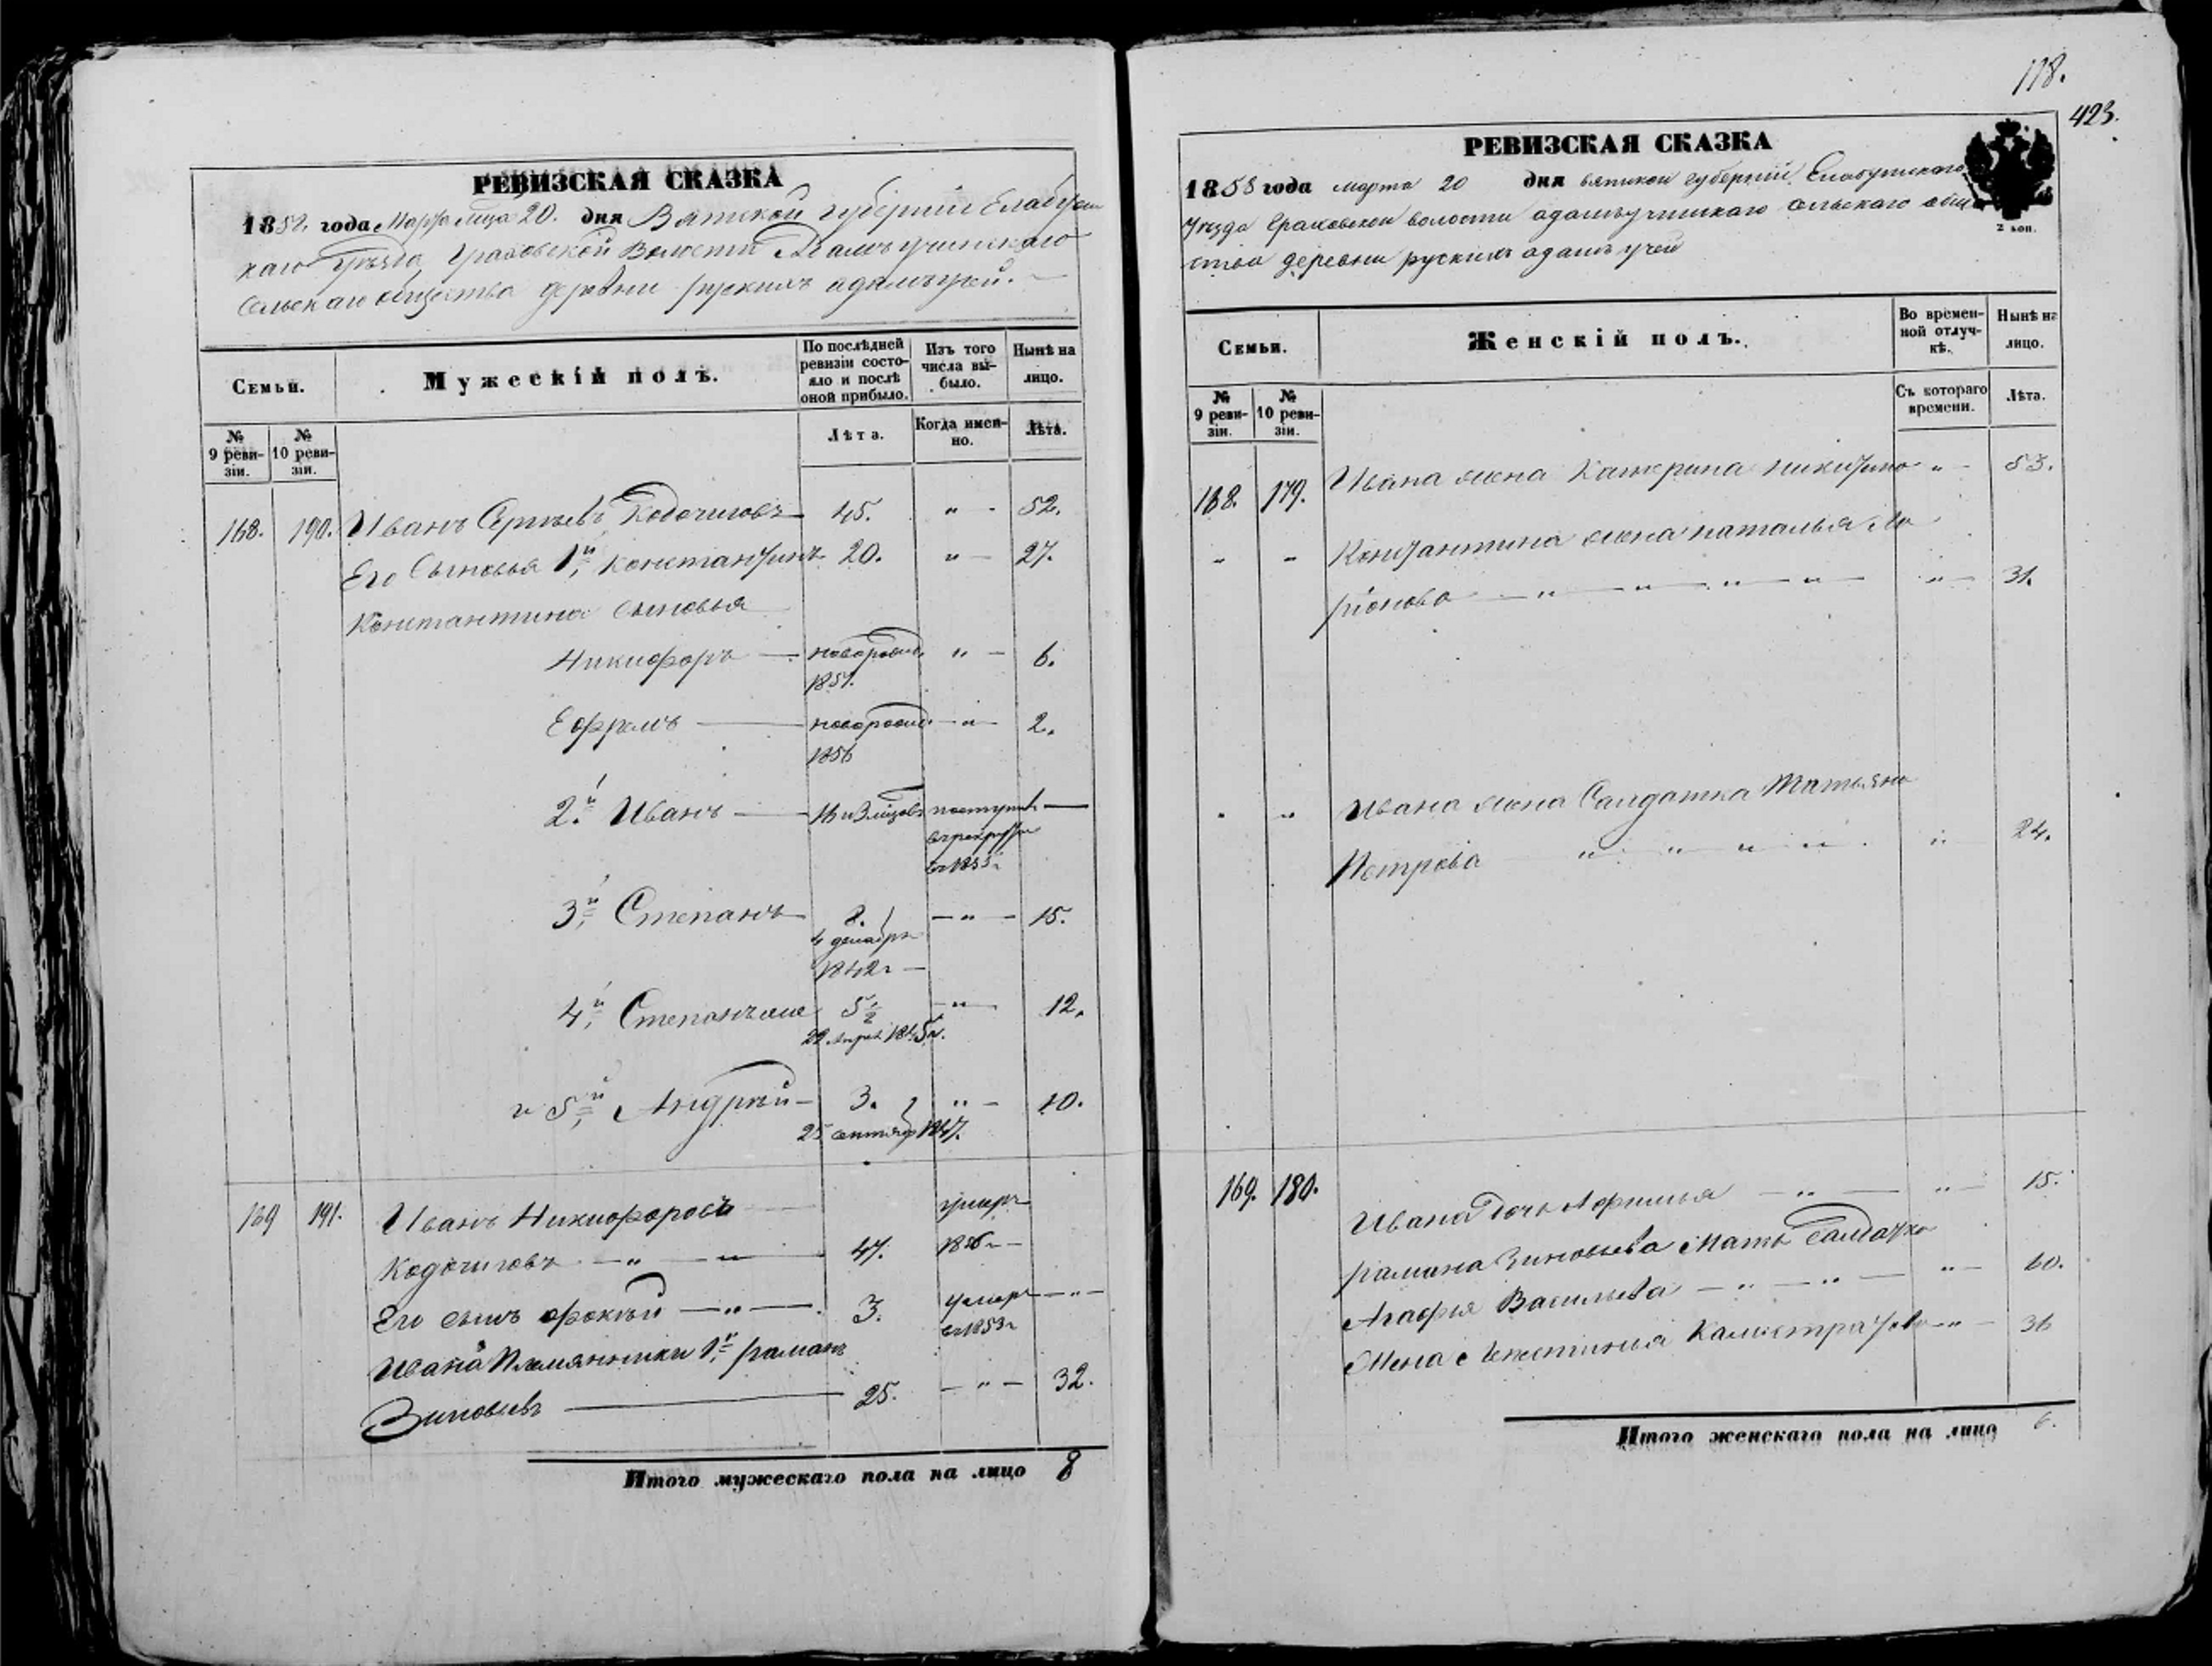 РЕВИЗСКАЯ СКАЗКА
1858 года Марта мца 20. дня Вятской губернии Елабужс
каго уезда, Граховской Волости Адамъучинскаго
Сельскаго общества деревни рускихъ адамъучей.
Семьи.
Мужескій полъ.
По послѣдней ревизіи состояло и послѣ оной прибыло.
Изъ того числа выбыло.
Нынѣ на лицо.
№ 9 ревизіи.
№ 10 ревизіи.
Лѣта.
Когда именно.
Лѣта.
168. 190. Иванъ Сергѣевъ Кодочиговъ 45. " 52.
Его Сыновья 1й, Константинъ 20. " 27.
Константина сыновья
Никифоръ — новорожд. " 6.
1851.
Ефремъ — новорожд. " 2.
1856
2й Иванъ — поступ.
в рекруты
в 1853г
3й, Степанъ — 8. " 15.
4 декабря
1842г —
4й, Степанъже 5 1/2 " 12.
22 Апрел 1845г.
и 5й, Андрей — 3. " 10.
25 сентябр 1847.
169 191. Иванъ Никифоровъ умеръ
Кодочиговъ — " — " 47. 1856г —
Его сынъ Фокѣй — " — 3. умеръ — " —
в 1853г
Ивана Племянники 1й, раманъ
Зиновьевъ — 25. — " — 32.
Итого мужескаго пола на лицо 8
118.
423.
РЕВИЗСКАЯ СКАЗКА
1858 года марта 20 дня вятской губерній Елабужскаго
Уезда Граховской волости адамъучинскаго сельскаго обще
ства деревни рускихъ адамъучей
2 коп.
Семьи.
Женскій полъ.
Во временной отлучкѣ.
Нынѣ на лицо.
№ 9 ревизіи.
№ 10 ревизіи.
Съ котораго времени.
Лѣта.
168. 179. Ивана жена Катерина никитина " — 53.
" " Константина жена наталья Ла
рионова — " — " — " — " — " — 31.
" " Ивана жена Салдатка Татьяна
Петрова " " " " " 24.
169. 180. Ивана дочь Афимья — " — " — 15.
рамана Зиновьева Мать Салдатка
Агафья Васильева — " — " — " — 60.
Жена Устинья Калистратова — " — 36
Итого женскаго пола на лицо 6.